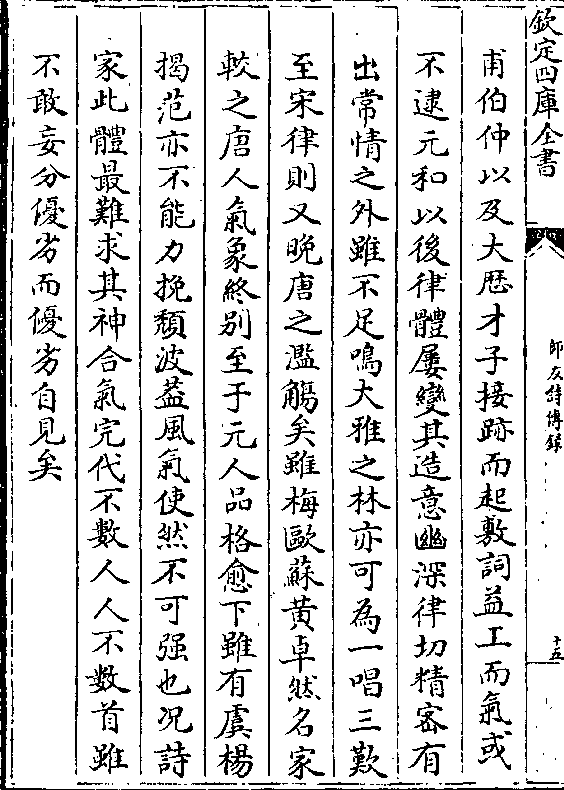 欽定四庫全書
師友詩傳録
十五
甫伯仲以及大厯才子接跡而起敷詞益工而氣或
不逮元和以後律體屢變其造意幽深律切精密有
出常情之外雖不足鳴大雅之林亦可為一唱三歎
至宋律則又晚唐之濫觴矣雖梅歐蘇黄卓然名家
較之唐人氣象終别至于元人品格愈下雖有虞楊
揭范亦不能力挽頽波葢風氣使然不可强也况詩
家此體最難求其神合氣完代不數人人不數首雖
不敢妄分優劣而優劣自見矣